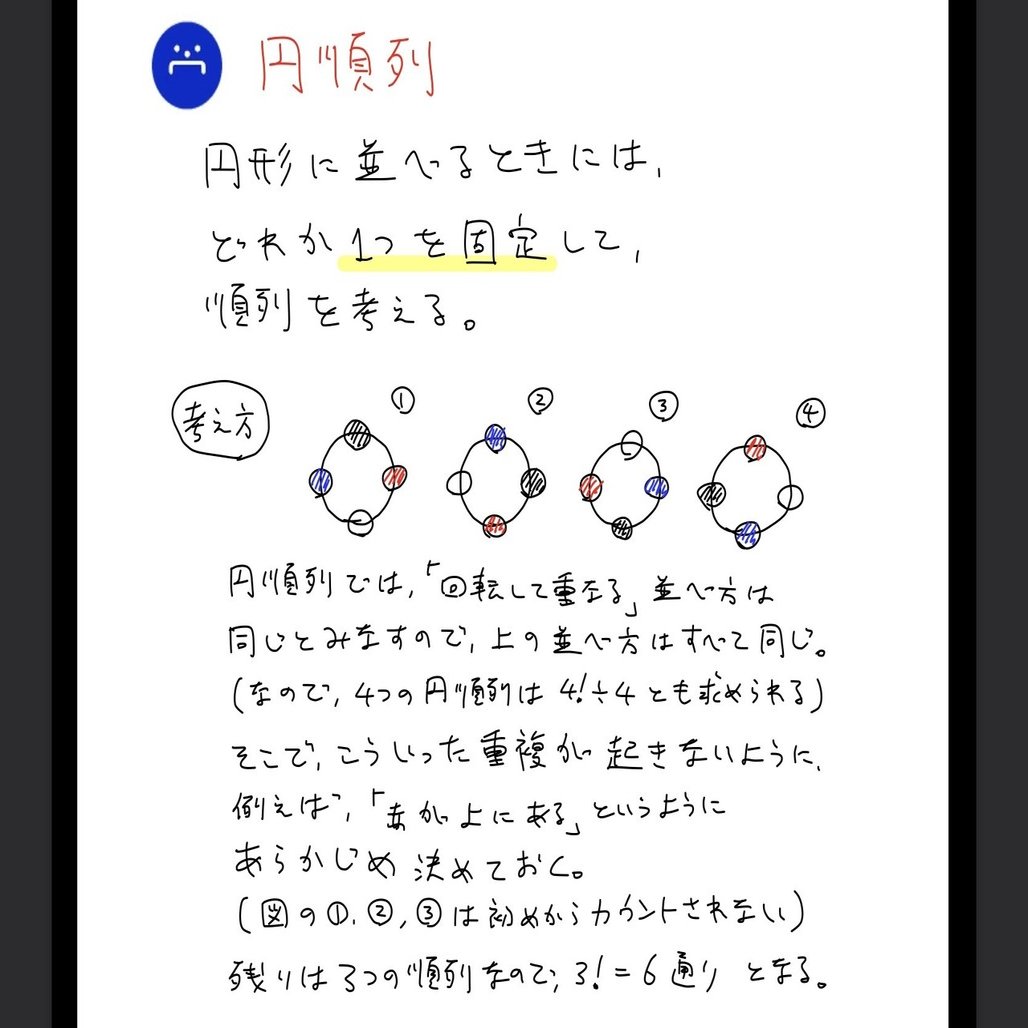 円順列
円形に並べるときには,
どれか1つを固定して,
順列を考える。
考え方
① ② ③ ④
円順列では,「回転して重なる」並べ方は
同じとみなすので, 上の並べ方はすべて同じ。
(なので, 4つの円順列は 4!÷4 とも求められる)
そこで, こういった重複が起きないように,
例えば,「赤が上にある」というように
あらかじめ決めておく。
(図の①, ②, ③は初めからカウントされない)
残りは3つの順列なので, 3! = 6通り となる。